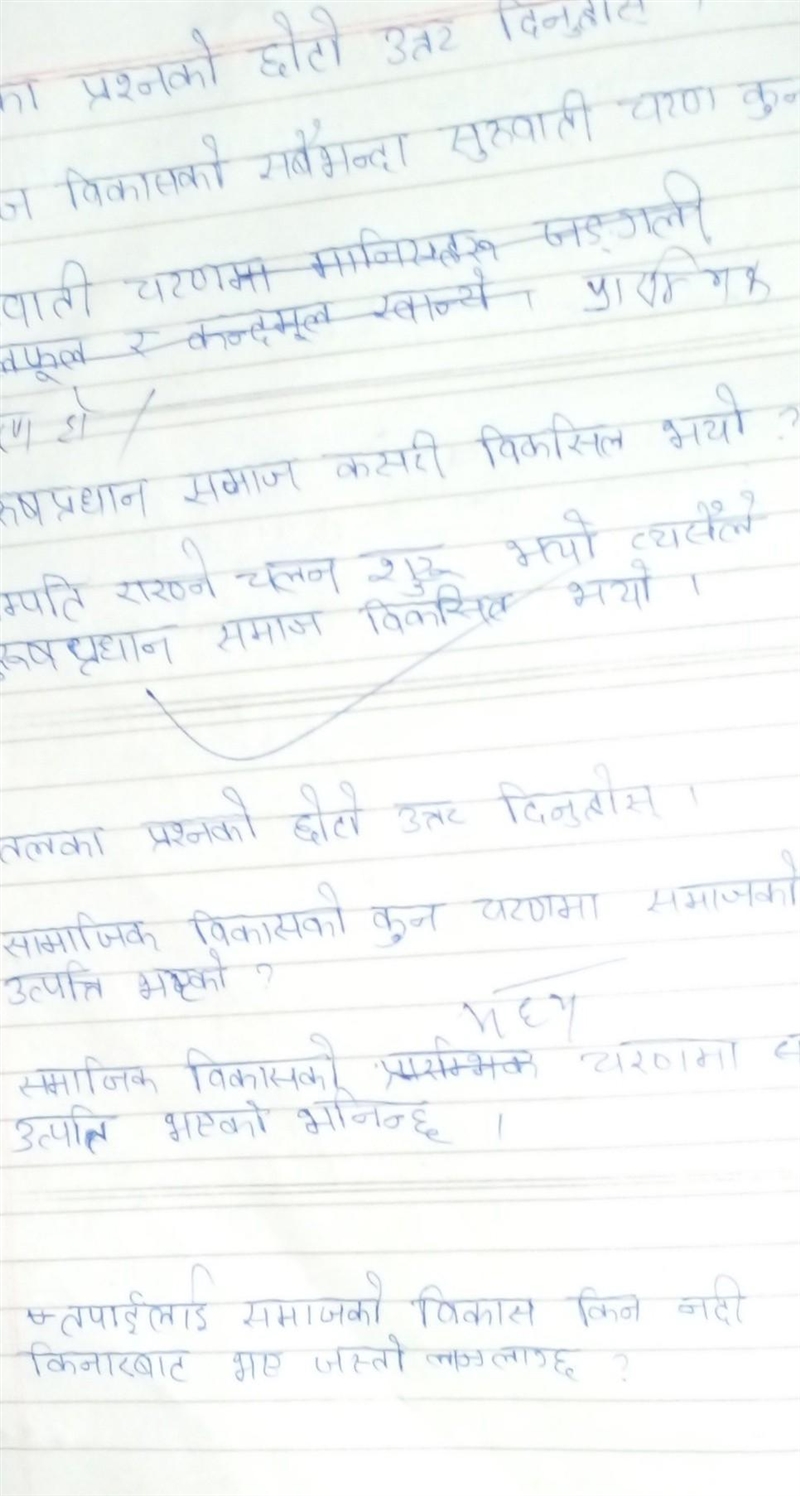 का प्रश्नको छोटो उत्तर दिनुहोस
ज विकासको सबैभन्दा सुरुवाती चरण कुन
वाती चरणमा मानिसहरू जङ्गली
फूल र कन्दमूल खान्थे । प्रारम्भिक
ण हो /
रुषप्रधान समाज कसरी विकसित भयो ?
म्पति राख्ने चलन शुरू भयो त्यसैले
रूषप्रधान समाज विकसित भयो ।
तलका प्रश्नको छोटो उत्तर दिनुहोस् ।
सामाजिक विकासको कुन चरणमा समाजको
उत्पत्ति भएको ?
मध्य
समाजिक विकासको प्रारम्भिक चरणमा स
उत्पति भएको मानिन्छ ।
तपाईलाई समाजको विकास किन नदी
किनारबाट भए जस्तो लाग्छ ?